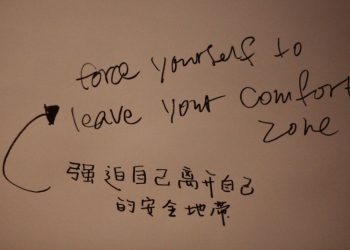 force yourself to
leave your comfort
zone
强迫自己离开自己
的安全地带